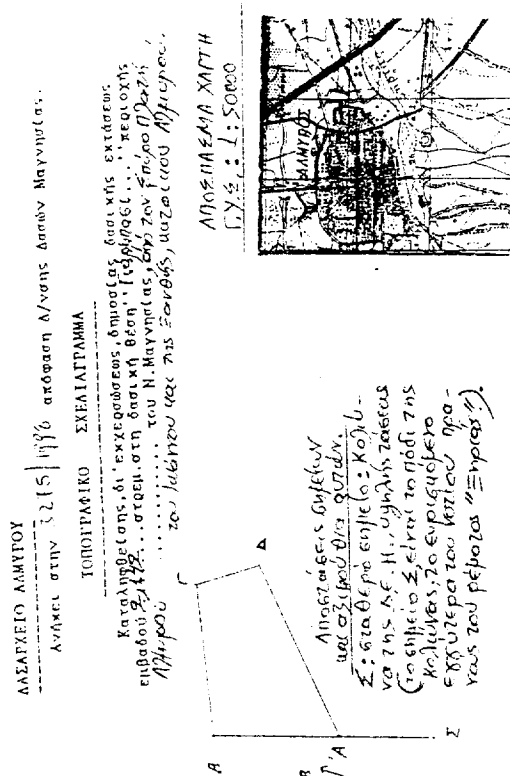 ΔΑΣΑΡΧΕΙΟ ΑΛΜΥΡΟΥ
Ανήκει στην 3215/1996 απόφαση Δ/νσης Δασών Μαγνησίας.
ΤΟΠΟΓΡΑΦΙΚΟ ΣΧΕΔΙΑΓΡΑΜΜΑ
Καταληφθείσης, δι' εκχερσώσεως, δημοσίας δασικής εκτάσεως
εμβαδού ... στρεμ. στη δασική θέση " ... " περιοχής
Αλμυρού ........ του Ν. Μαγνησίας, από τον Σπύρο
του Ιάσωνου και της Ξανθής, κατοίκου Αλμυρού.
ΑΠΟΣΠΑΣΜΑ ΧΑΡΤΗ
Γ.Υ.Σ. : 1:50000
ΑΛΜΥΡΟΣ
Γ
Δ
Β
Α
Σ
Αποστάσεις σημείων
και αζιμούθια αυτών.
Σ: σταθερό σημείο = Κολώ-
να της Δ.Ε.Η. υψηλής τάσεως
(το σημείο Σ είναι το πόδι της
κολώνας, το ευρισκόμενο
εγγύτερα του νοτίου πρα-
νούς του ρέματος "Ξηριάς").